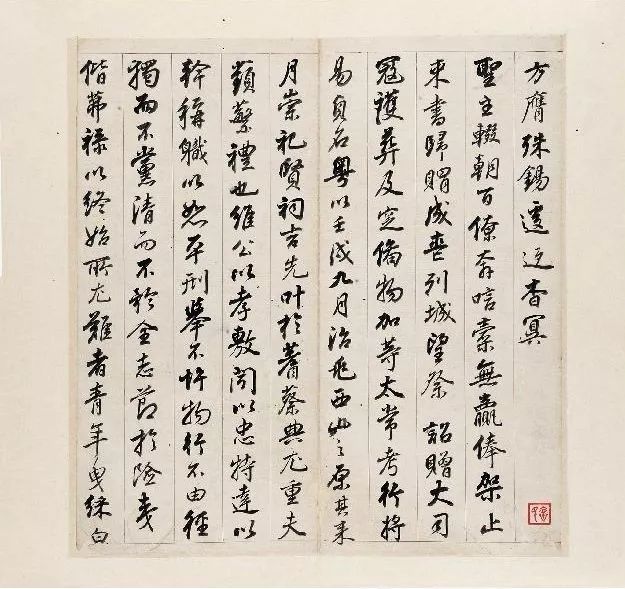 方膺殊錫遽返杳冥
聖主輟朝百僚奔唁橐無贏俸架止
束書歸賵咸壺列城望祭詔贈大司
寇護葬及窆備物加等太常考行將
易貞名粵以壬戌九月治兆西山之原其來
月崇祀賢祠吉先叶於蓍蔡典尤重夫
蘋蘩禮也維公以孝敷聞以忠特達以
幹稱職以恕平刑舉不忤物行不由徑
獨而不黨清而不矜全志節於險夷
偕茀祿以終始所尤難者青年曳綠白